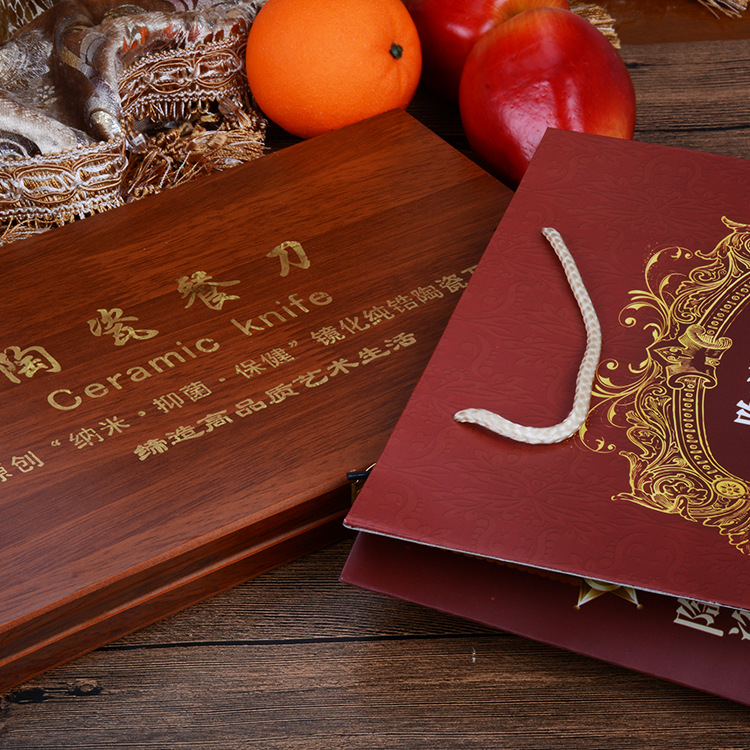 陶瓷餐刀
Ceramic knife
原创“纳米·抑菌·保健”镜化纯锆陶瓷刀
缔造高品质艺术生活